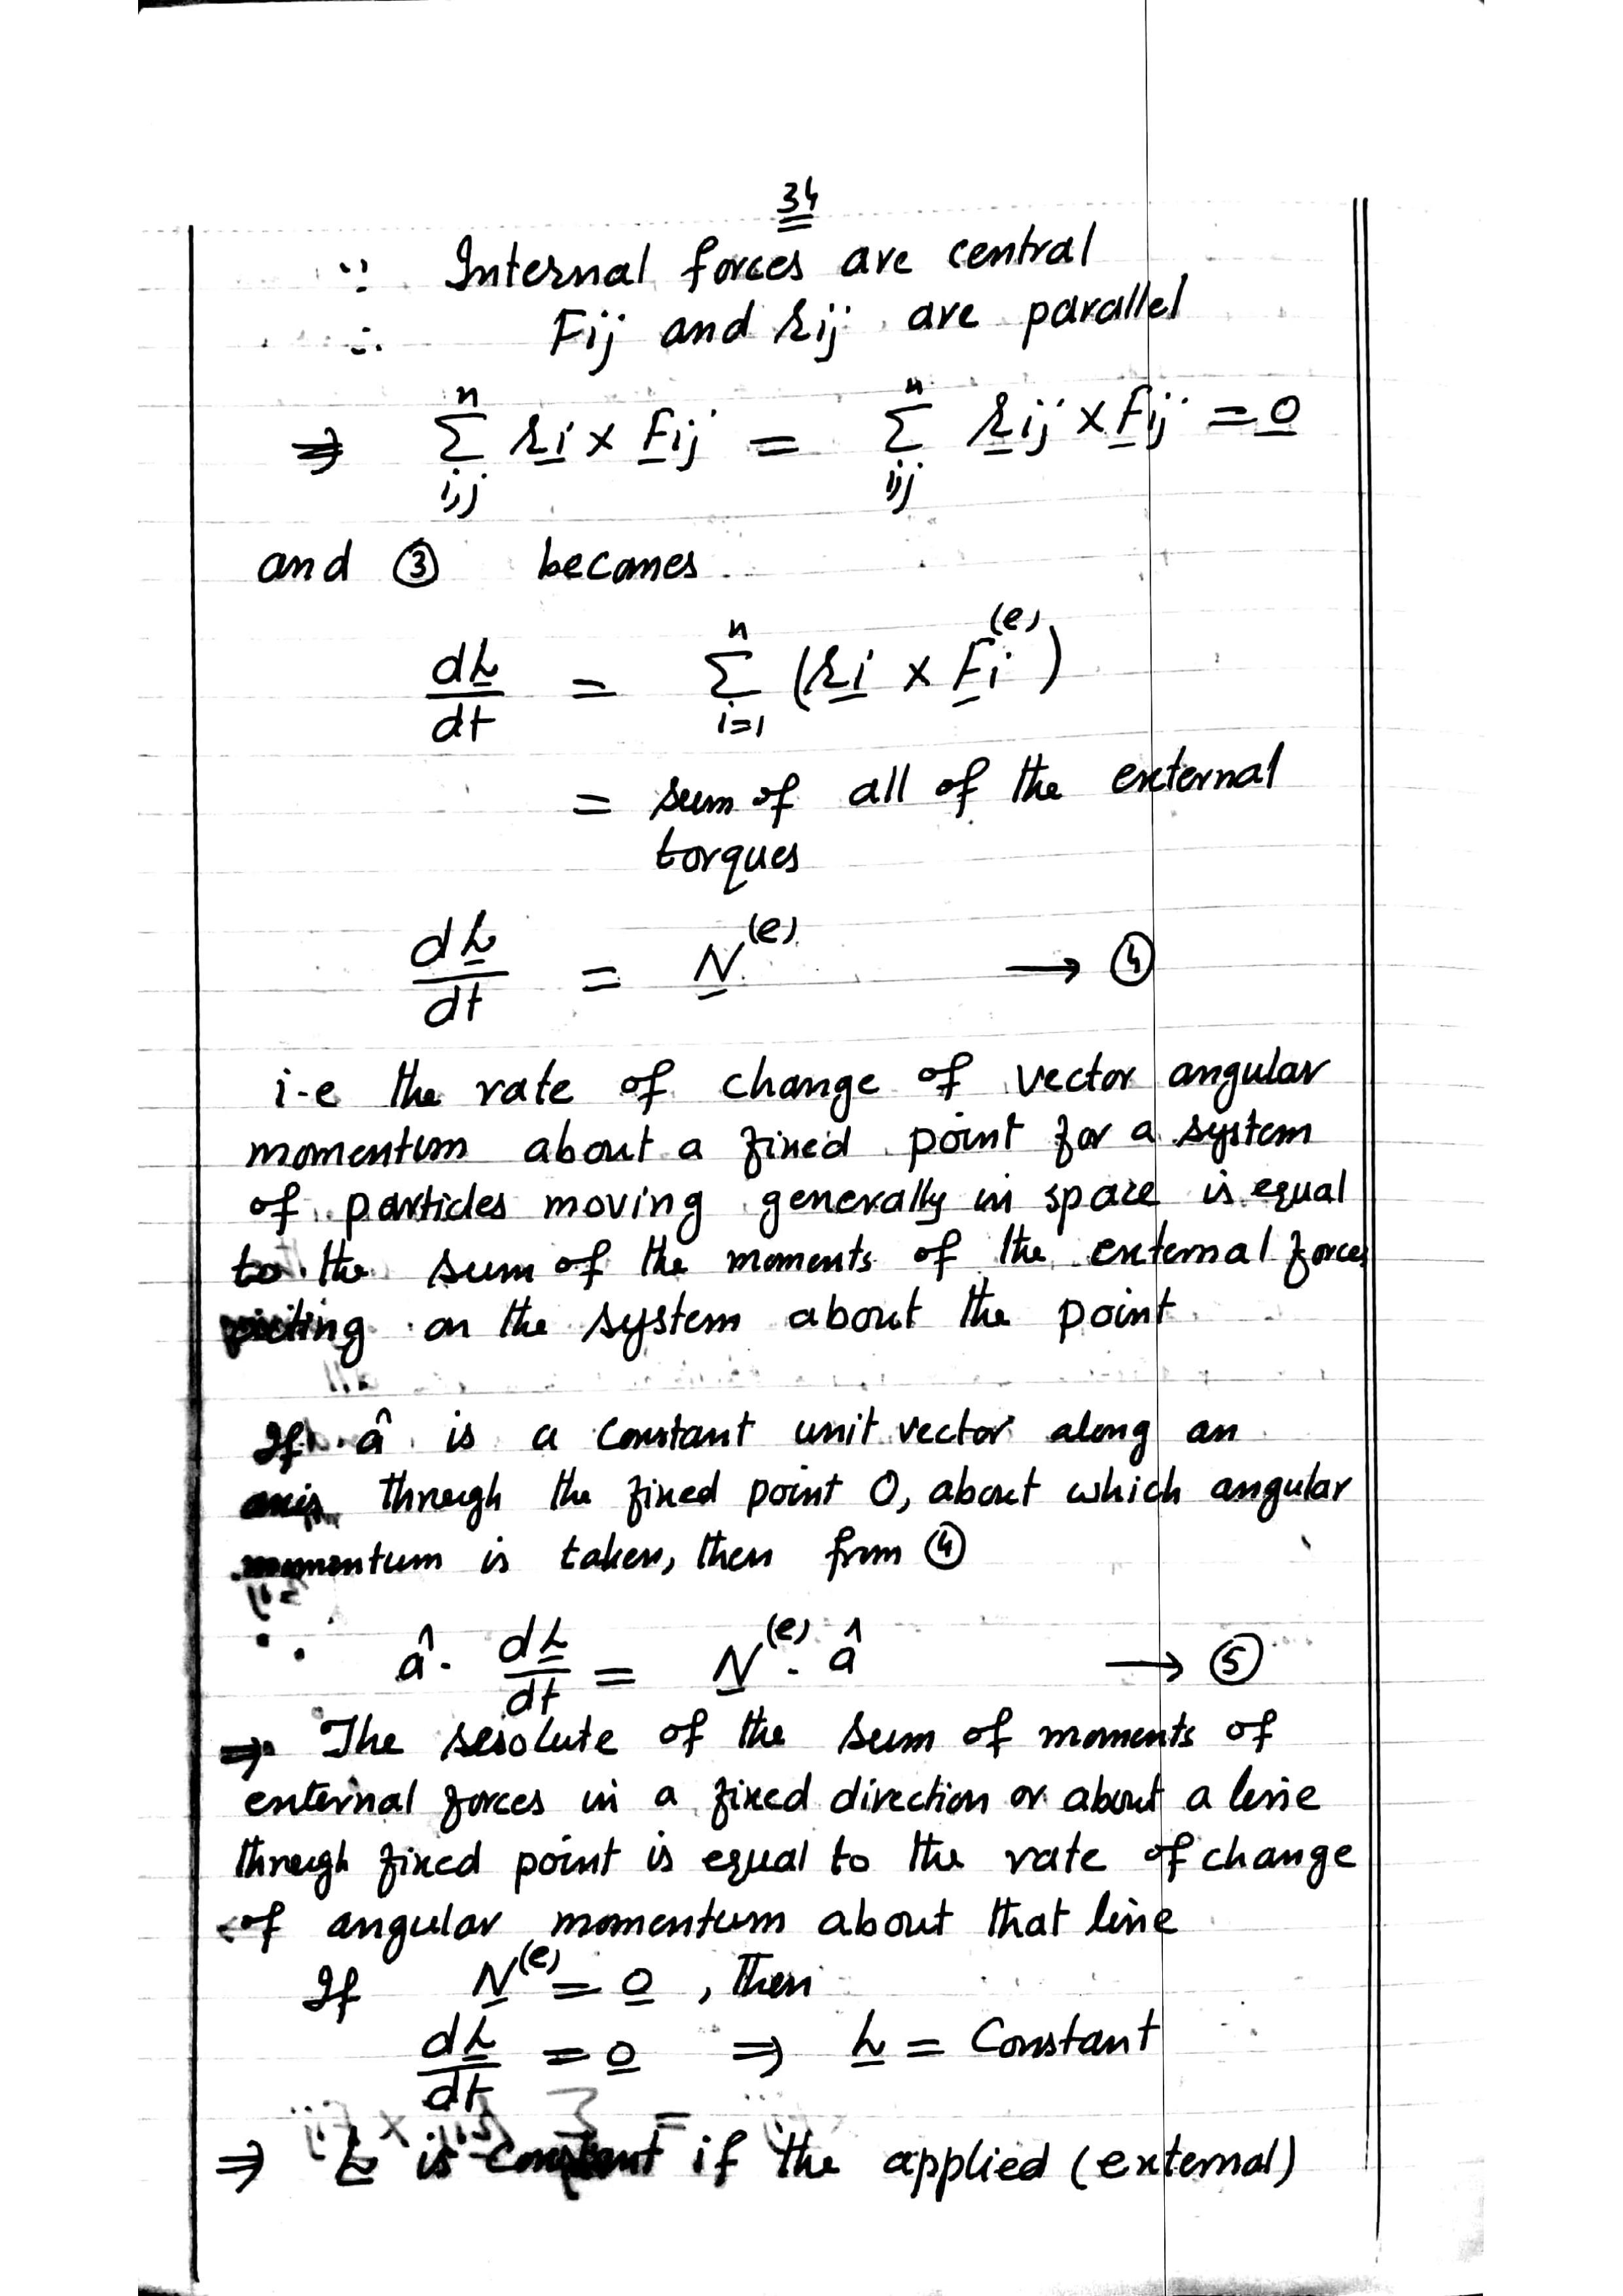 34
∵ Internal forces are central
∴ Fij and rij are parallel
⇒ n Σ i,j r̲i × F̲ij = n Σ i,j r̲ij × F̲ij = 0̲
and ③ becomes
dL̲/dt = n Σ i=1 (r̲i × F̲i(e))
= sum of all of the external
torques
dL̲/dt = N̲(e) → ④
i-e the rate of change of vector angular
momentum about a fixed point for a system
of particles moving generally in space is equal
to the sum of the moments of the external forces
acting on the system about the point
If â is a constant unit vector along an
axis through the fixed point O, about which angular
momentum is taken, then from ④
∴ â. dL̲/dt = N̲(e). â → ⑤
⇒ The resolute of the sum of moments of
external forces in a fixed direction or about a line
through fixed point is equal to the rate of change
of angular momentum about that line
If N̲(e) = 0̲, then
dL̲/dt = 0̲ ⇒ L̲ = Constant
⇒ L̲ is constant if the applied (external)